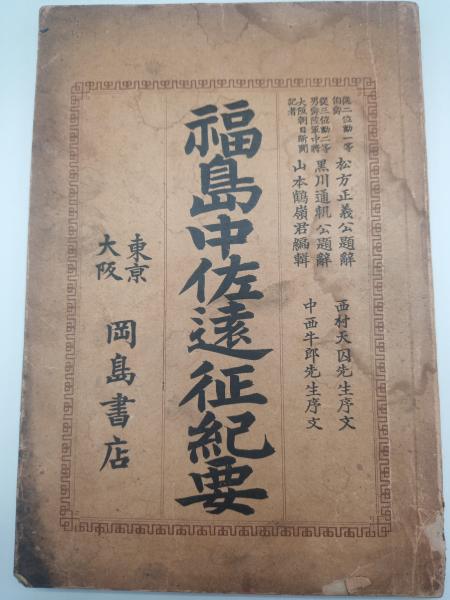 從二位勳一等
伯爵
松方正義公題辭
從三位勳二等
男爵陸軍中將
黒川通軌公題辭
大阪朝日新聞
記者
山本鶴嶺君編輯
西村天囚先生序文
中西牛郎先生序文
福島中佐遠征紀要
東京
大阪
岡島書店